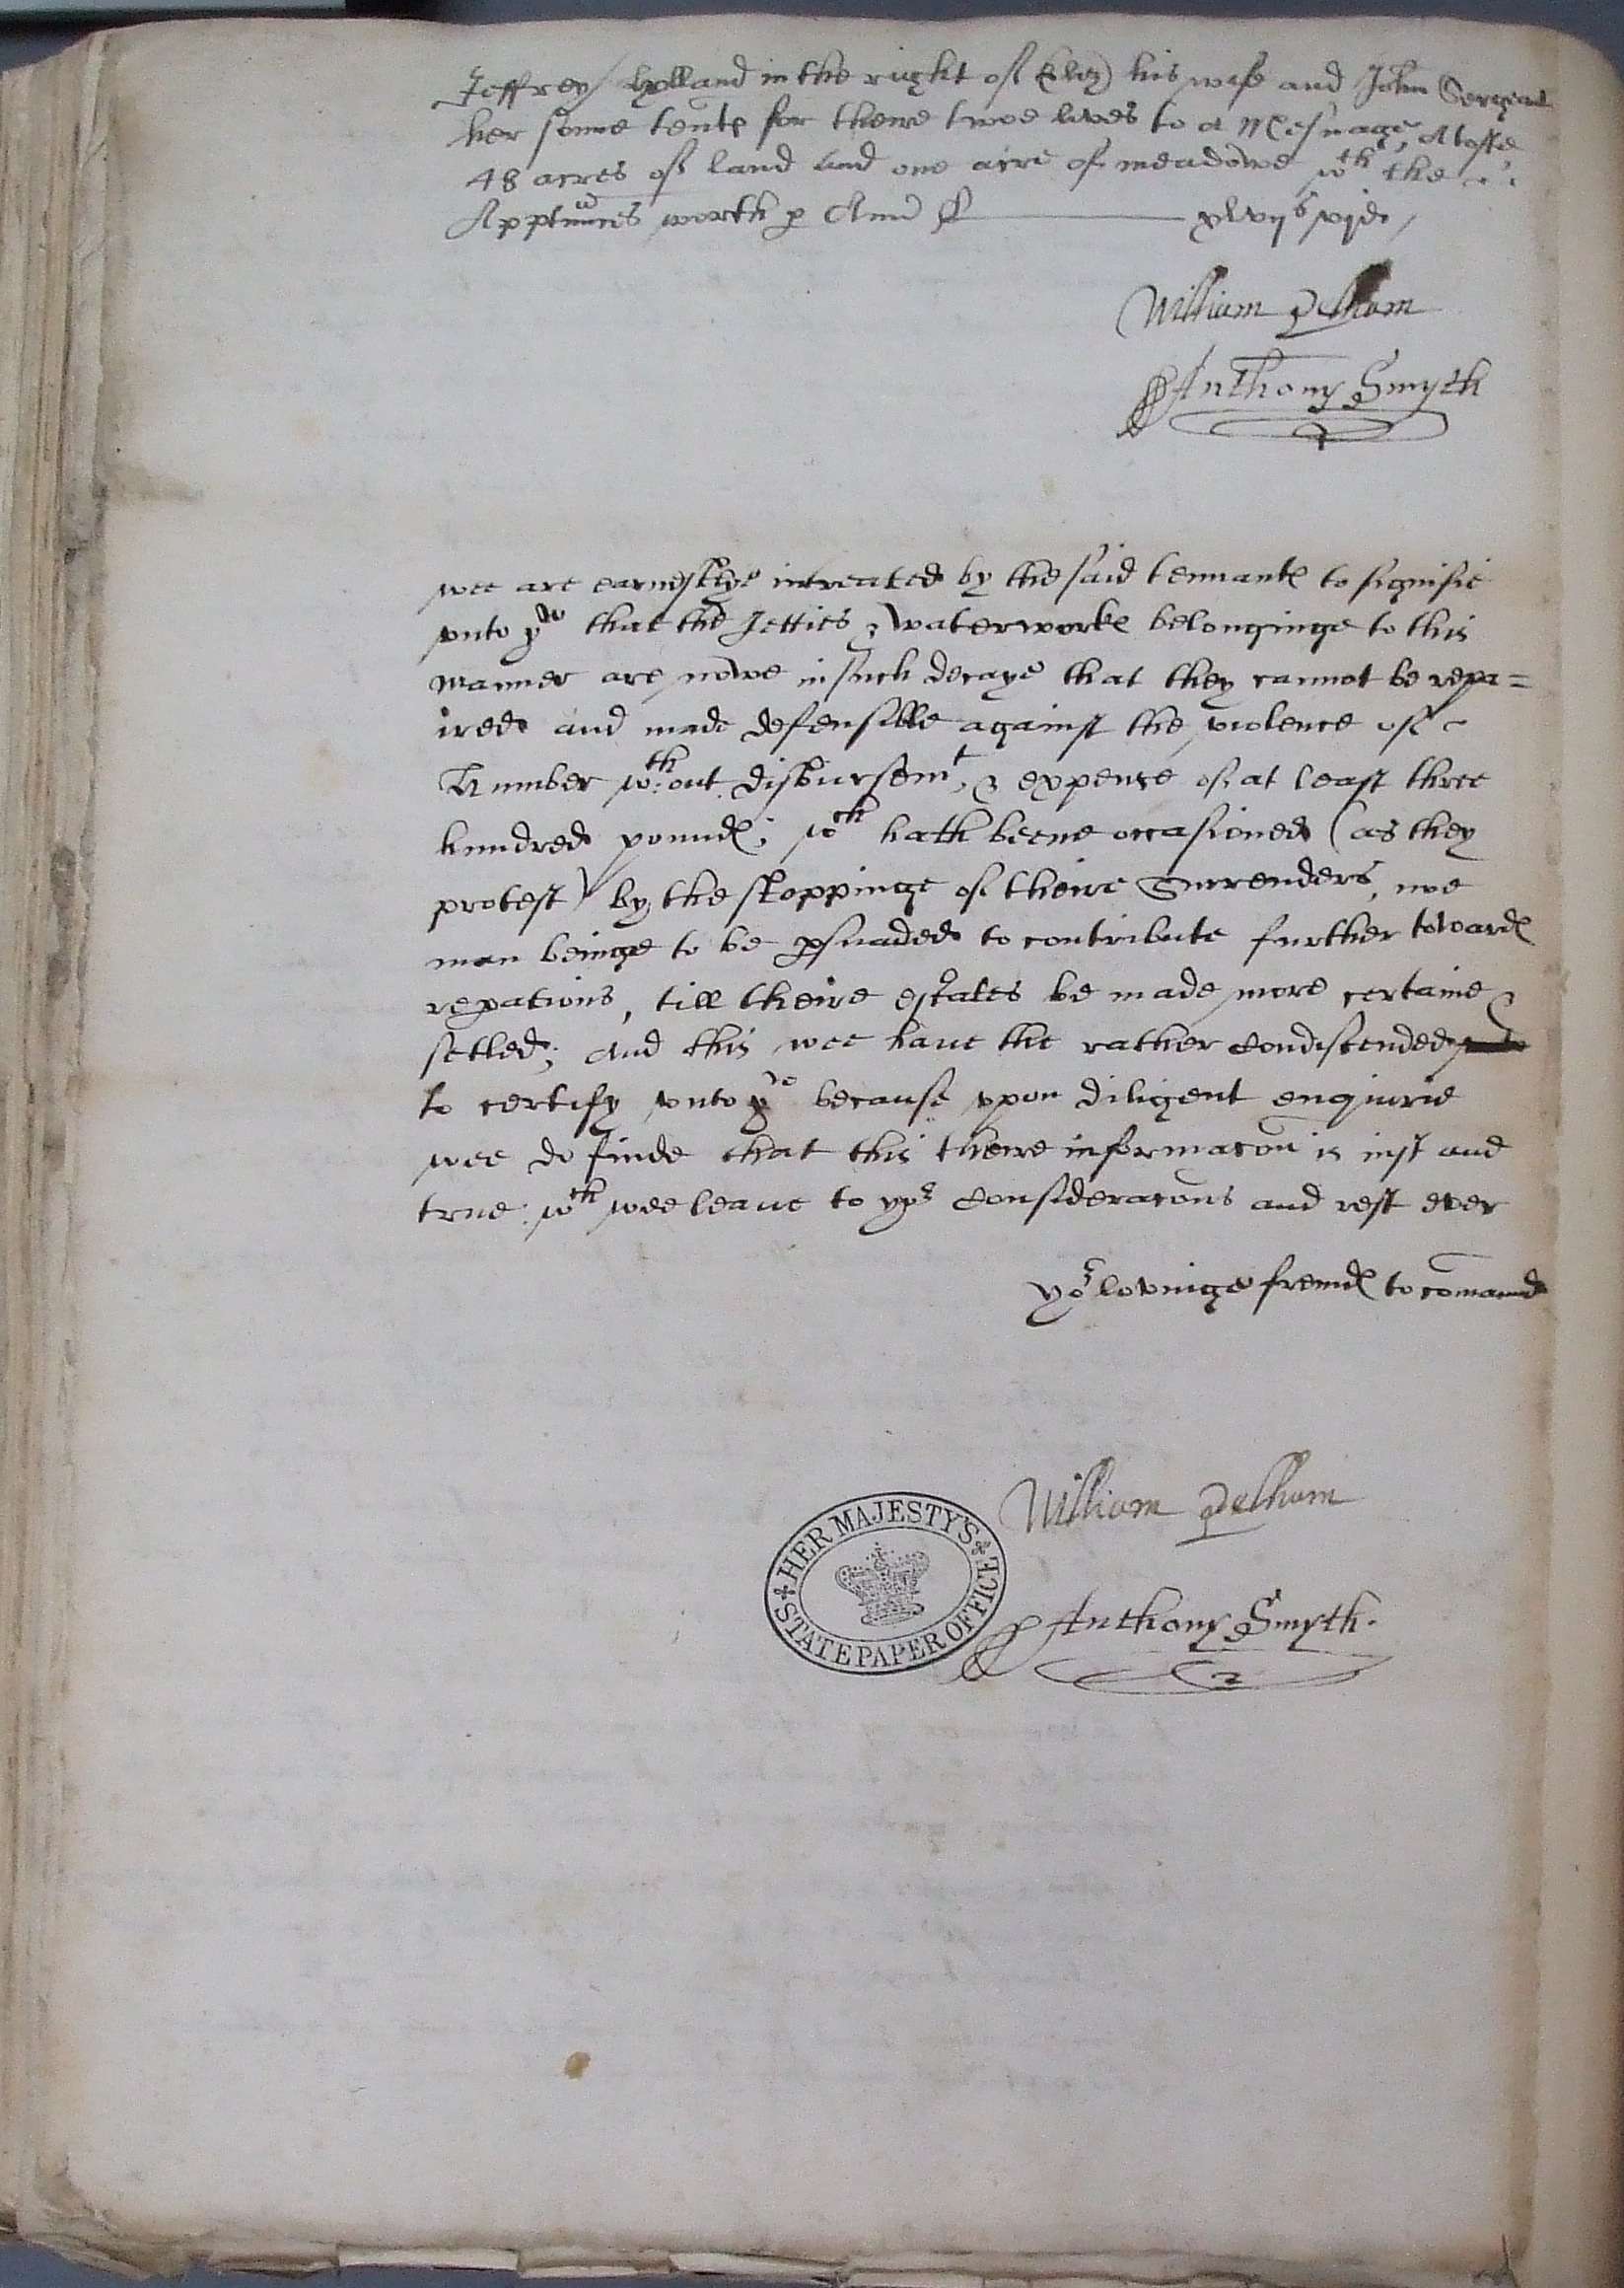 Jeffrey Holland in the right of Eliz his wife and John Sergeant
her sonne tente for theire twoe lives to a Mesuage, A tofte
48 acres of land and one acre of meadowe wth the
Apptinnces worth p Ann̄ xlvijs vjd
William Pelham
Anthony Smyth
wee are earnestlye intreated by the said tennants to signifie
vnto yow that the Jetties & waterworks belonginge to this
Manner are nowe in such decaye that they cannot be repa=
ired and made defensible against the violence of
Humber wth:out disbursemt, & expence of at least three
hundred pounds; wch hath beene occasioned (as they
protest) by the stoppinge of theire Surrenders, noe
man beinge to be psuaded to contribute further towards
repations, till theire estates be made more certaine &
setled; And this wee haue the rather condiscended
to certify vnto yow because vpon diligent enquirie
wee do finde that this theire informacon is iust and
true: wch wee leaue to yor consideracons and rest ever
yor lovinge frends to comaund
William Pelham
Anthony Smyth.
HER MAJESTY'S
STATE PAPER OFFICE